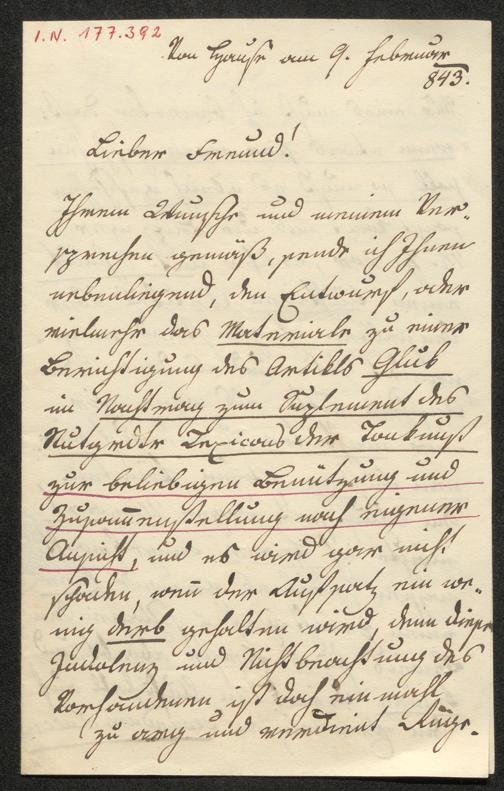 I. N. 177.392
Von Hause am 9. Februar
843.
Lieber Freund!
Ihrem Wunsche und meinem Ver-
sprechen gemäß, sende ich Ihnen
nebenliegend, den Entwurf, oder
vielmehr das Materiale zu einer
Berichtigung des Artikls
im Nachtrag zum Suplement des
Lexicons der Tonkunst
zur beliebigen Benützung und
Zusammenstellung nach eigener
Ansicht, und es wird gar nicht
schaden, wen̄ der Aufsatz ein we-
nig derb gehalten wird, denn diese
Indolenz und Nichtbeachtung des
Vorhandenen ist doch einmahl
zu arg und verdient Rüge.